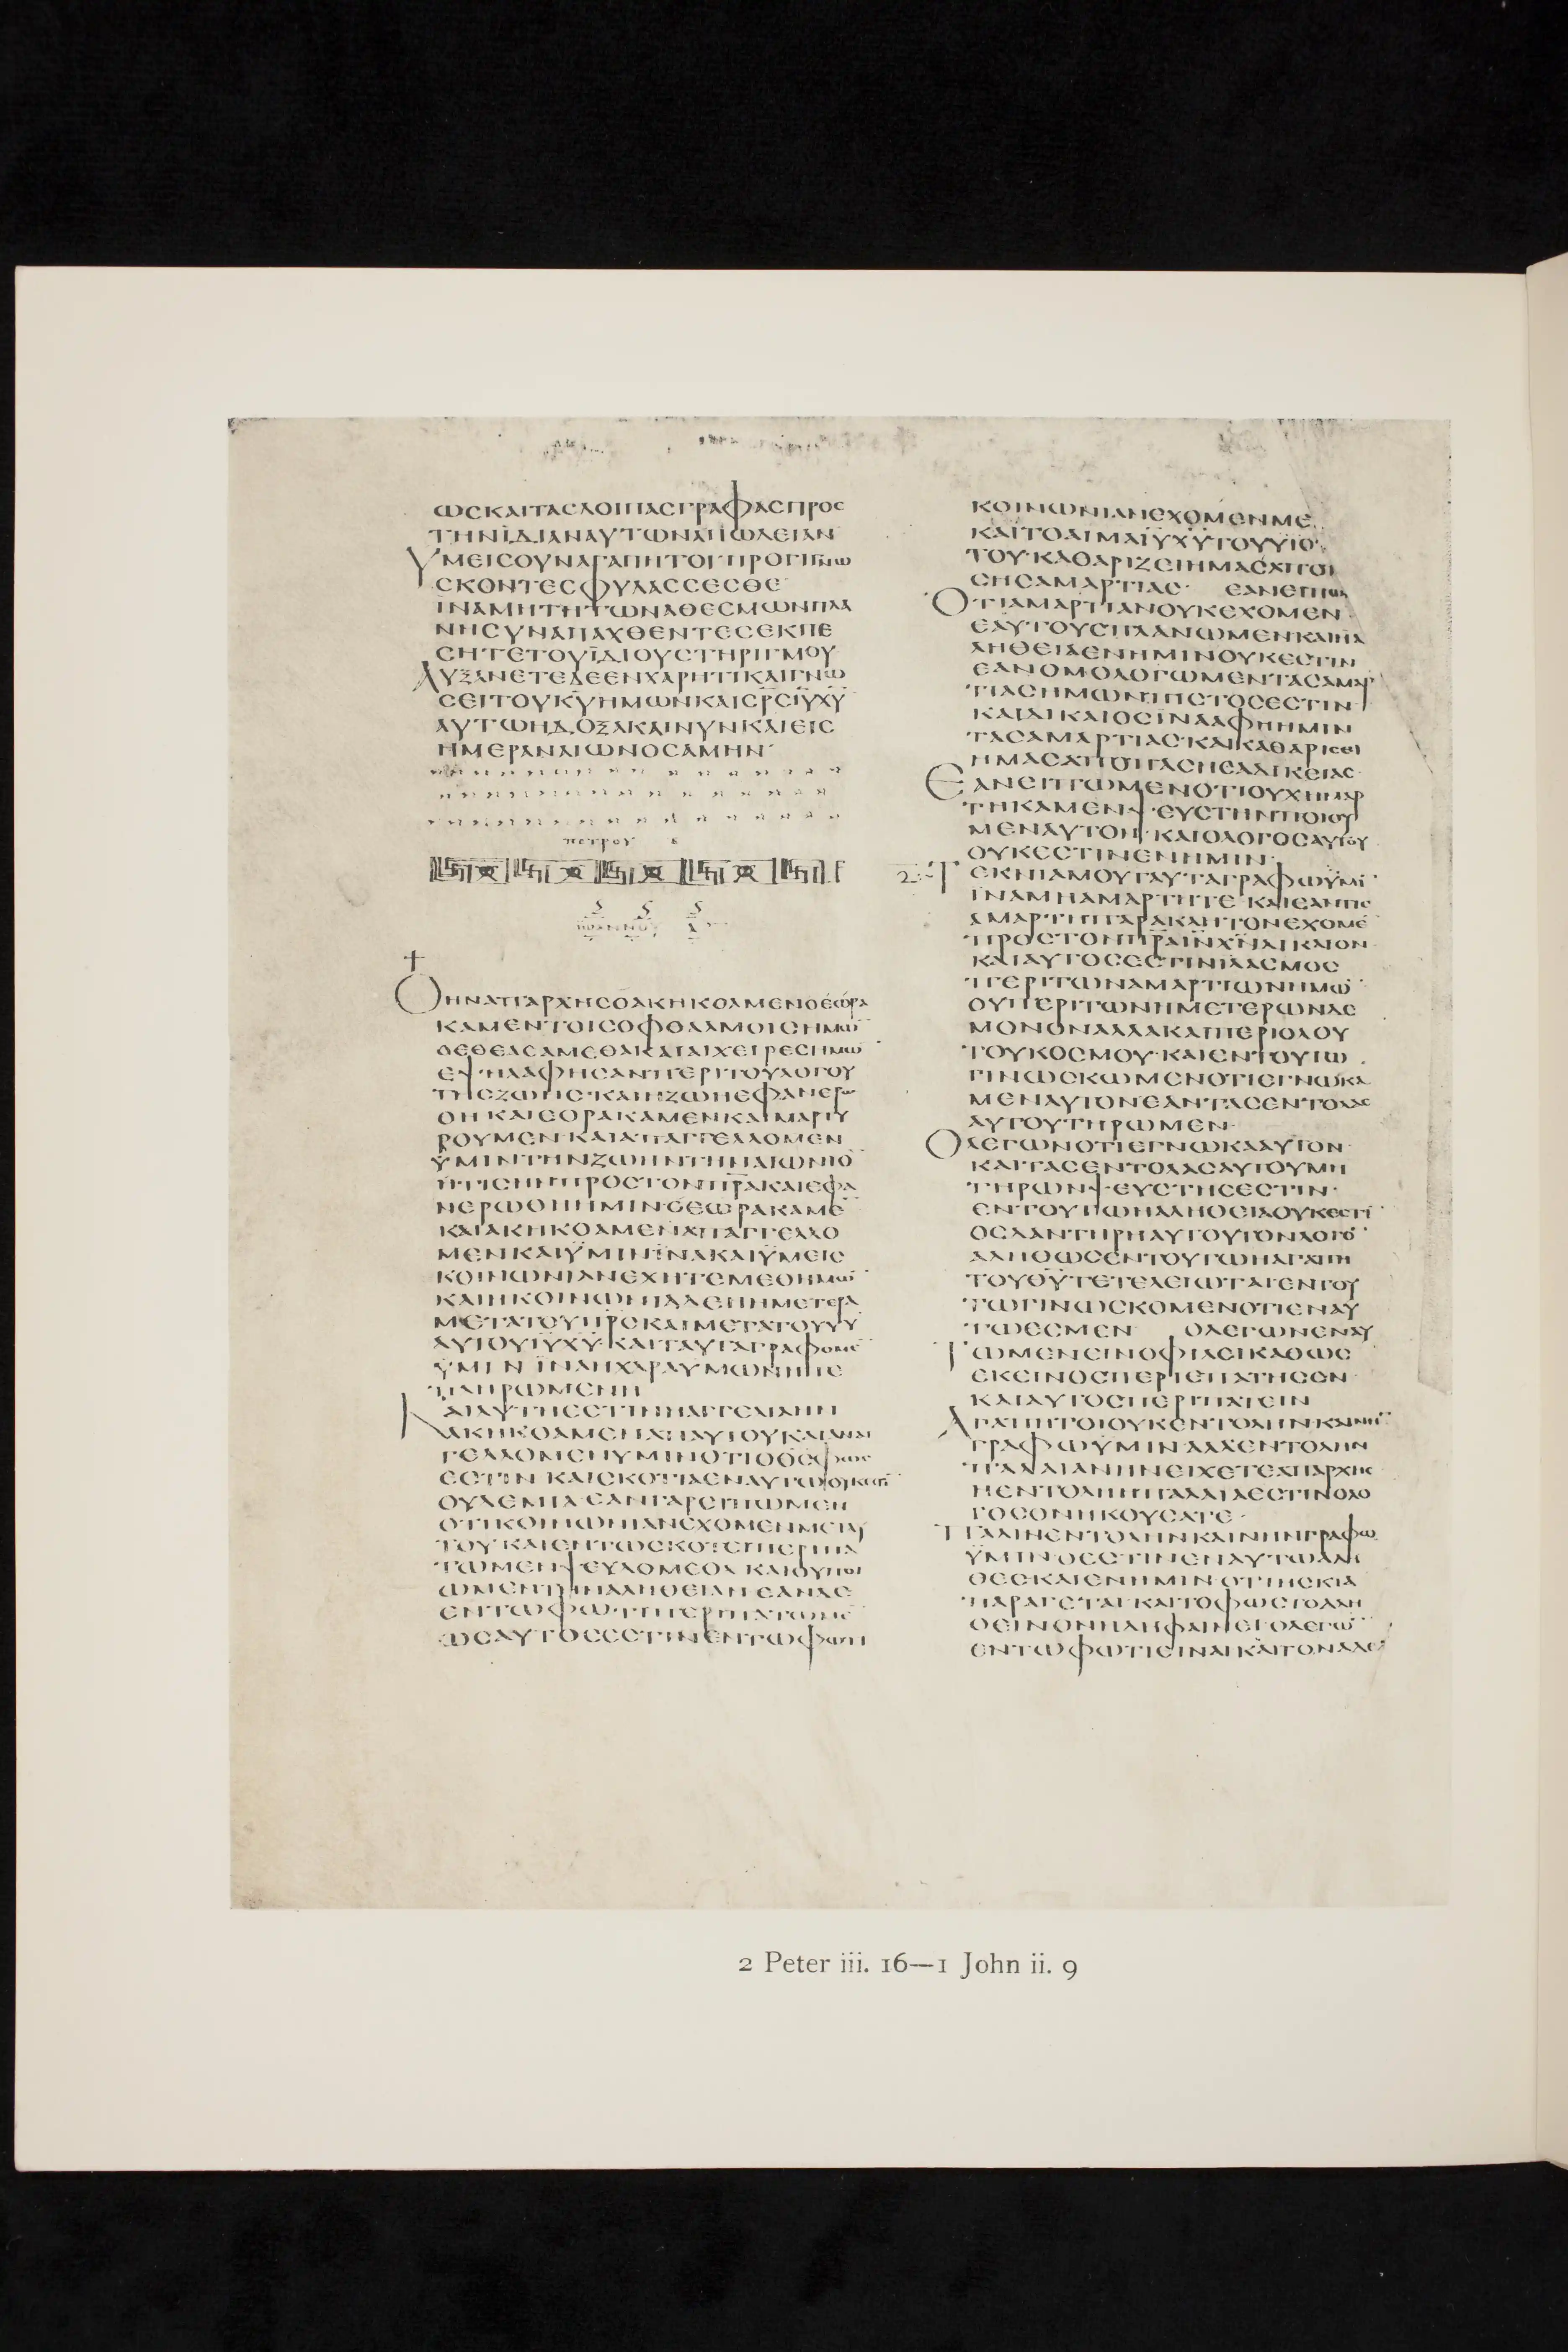 ωσκαιτασλοιπασγραφασπροσ
τηνϊδιαναυτωναπωλειαν
υμεισουναγαπητοιπρογινω
σκοντεσφυλασσεσθε
ιναμητητωναθεσμωνπλα
νησυναπαχθεντεσεκπε
σητετουϊδιουστηριγμου
αυξανετεδεενχαρητικαιγνω
σειτουκ̅υ̅ημωνκαισρ̅σ̅ι̅υ̅χ̅υ̅
αυτωηδοξακαινυνκαιεισ
ημεραναιωνοσαμην
πετρου β
ιωαννου α
οηναπαρχησοακηκοαμενοεωρα
καμεντοισοφθαλμοισημω̅
οεθεασαμεθακαιαιχειρεσημω̅
εψηλαφησανπεριτουλογου
τησζωησ·καιηζωηεφανερω
θηκαιεορακαμενκαιμαρτυ
ρουμενκαιαπαγγελλομεν
ϋμιντηνζωηντηναιωνιο̅
ητισηνπροστονπ̅ρ̅α̅καιεφα
νερωθηημιν·οεωρακαμε̅
καιακηκοαμεναπαγγελλο
μενκαιϋμινϊνακαιϋμεισ
κοινωνιανεχητεμεθημω̅
καιηκοινωνιαδεηημετερα
μετατουπ̅ρ̅σ̅καιμετατουυ̅υ̅
αυτουι̅υ̅χ̅υ̅·καιταυταγραφομε̅
ϋμινϊναηχαραυμωνηπε
πληρωμενη
καιαυτηεστινηαγγελιαην
ακηκοαμεναπαυτουκαιαναγ
γελλομενυμινοτιοθ̅σ̅φωσ
εστινκαισκοτιαεναυτωουκεστι̅
ουδεμια·εανγαρειπωμεν
οτικοινωνιανεχομενμεταυ
τουκαιεντωσκοτειπεριπα
τωμενψευδομεθακαιουποι
ωμεντηναληθειαν·εανδε
εντωφωτιπεριπατωμε̅
ωσαυτοσεστινεντωφωτι
κοινωνιανεχομενμε
καιτοαιμαι̅υ̅χ̅υ̅τουυ̅υ̅
του·καθαριζειημασαπο
σησαμαρτιασ· εανειπω
οτιαμαρτιανουκεχομεν
εαυτουσπλανωμενκαιηα
ληθειαενημινουκεστιν
εανομολογωμεντασαμαρ
τιασημωνπιστοσεστιν
καιδικαιοσϊνααφηημιν
τασαμαρτιασ·καικαθαρισει
ημασαποπασησαδικειασ
εανειπωμενοτιουχημαρ
τηκαμενψευστηνποιου
μεναυτον·καιολογοσαυτου
ουκεστινενημιν·
2 τεκνιαμουταυταγραφωϋμι̅
ϊναμηαμαρτητε·καιεαντισ
αμαρτηπαρακλητονεχομε̅
προστονπ̅ρ̅α̅ι̅ν̅χ̅ν̅δικαιον
καιαυτοσεστινϊλασμοσ
περιτωναμαρτιωνημω̅
ουπεριτωνημετερωνδε
μονοναλλακαιπεριολου
τουκοσμου·καιεντουτω
γινωσκωμενοτιεγνωκα
μεναυτον·εαντασεντολασ
αυτουτηρωμεν·
ολεγωνοτιεγνωκααυτον
καιτασεντολασαυτουμη
τηρωνψευστησεστιν·
εντουτωηαληθειαουκεστι̅
οσδαντηρηαυτουτονλογο̅
αληθωσεντουτωηαγαπη
τουθ̅υ̅τετελειωταιεντου
τωγινωσκομενοτιεναυ
τωεσμεν ολεγωνεναυ
τωμενεινοφιλεικαθωσ
εκεινοσπεριεπατησεν
καιαυτοσπεριπατειν
αγαπητοιουκεντοληνκαινη̅
γραφωϋμιναλλεντολην
παλαιανηνειχετεαπαρχησ
ηεντοληηπαλαιαεστινολο
γοσονηκουσατε·
παλινεντοληνκαινηνγραφω
ϋμινοεστινεναυτωαλη
θεσκαιενημινοτιησκια
παραγεται·καιτοφωστοαλη
θεινονηδηφαινει·ολεγω̅
εντωφωτιειναικαιτοναδελ
2 Peter iii. 16—1 John ii. 9